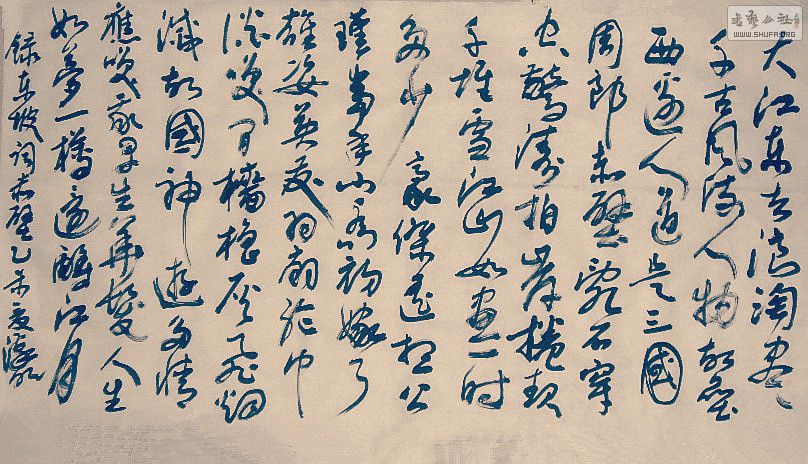 大江东去浪淘尽
千古风流人物故壘
西边人道是三國
周郎赤壁乱石穿
空驚涛拍岸捲起
千堆雪江山如画一时
多少豪傑遥想公
瑾当年小乔初嫁了
雄姿英发羽扇纶巾
谈笑间檣櫓灰飞烟
滅故國神遊多情
應笑我早生华髮人生
如夢一樽還酹江月
録东坡词赤壁乙未夏
书艺公社
WWW.SHUFA.ORG